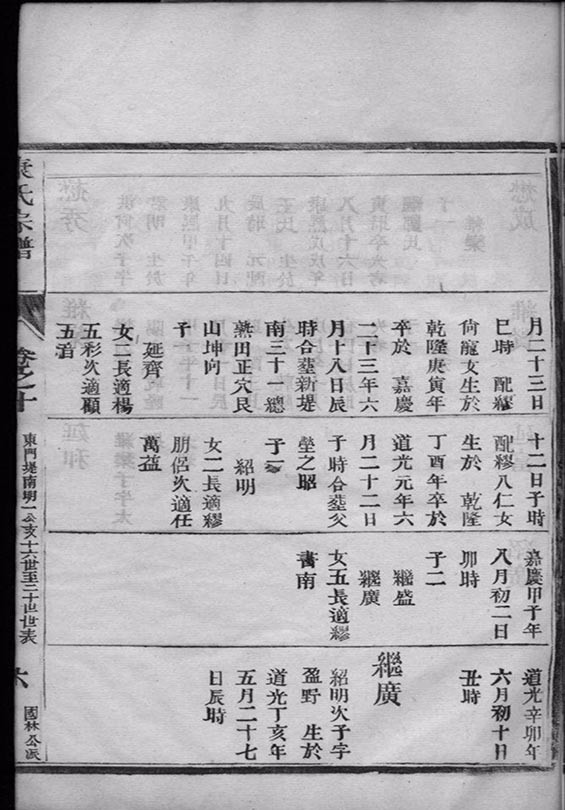 月二十三日
巳時　配繆
尙寵女生於
乾隆庚寅年
卒於　嘉慶
二十三年六
月十八日辰
時合塟新堤
南三十一總
熟田正穴艮
山坤向
子一
延齊
女二長適楊
五彩次適顧
五湻
十二日子時
配繆八仁女
生於　乾隆
丁酉年卒於
道光元年六
月二十二日
子時合塟父
塋之昭
子一
紹明
女二長適繆
朋侶次適任
萬益
嘉慶甲子年
八月初二日
卯時
子二
繼盛
繼廣
女五長適繆
書南
道光辛卯年
六月初十日
丑時
繼廣
紹明次子字
盈野　生於
道光丁亥年
五月二十七
日辰時
氏宗譜
卷之十
東門堤南明一公亥十六世至二十世世表
六
國林公派